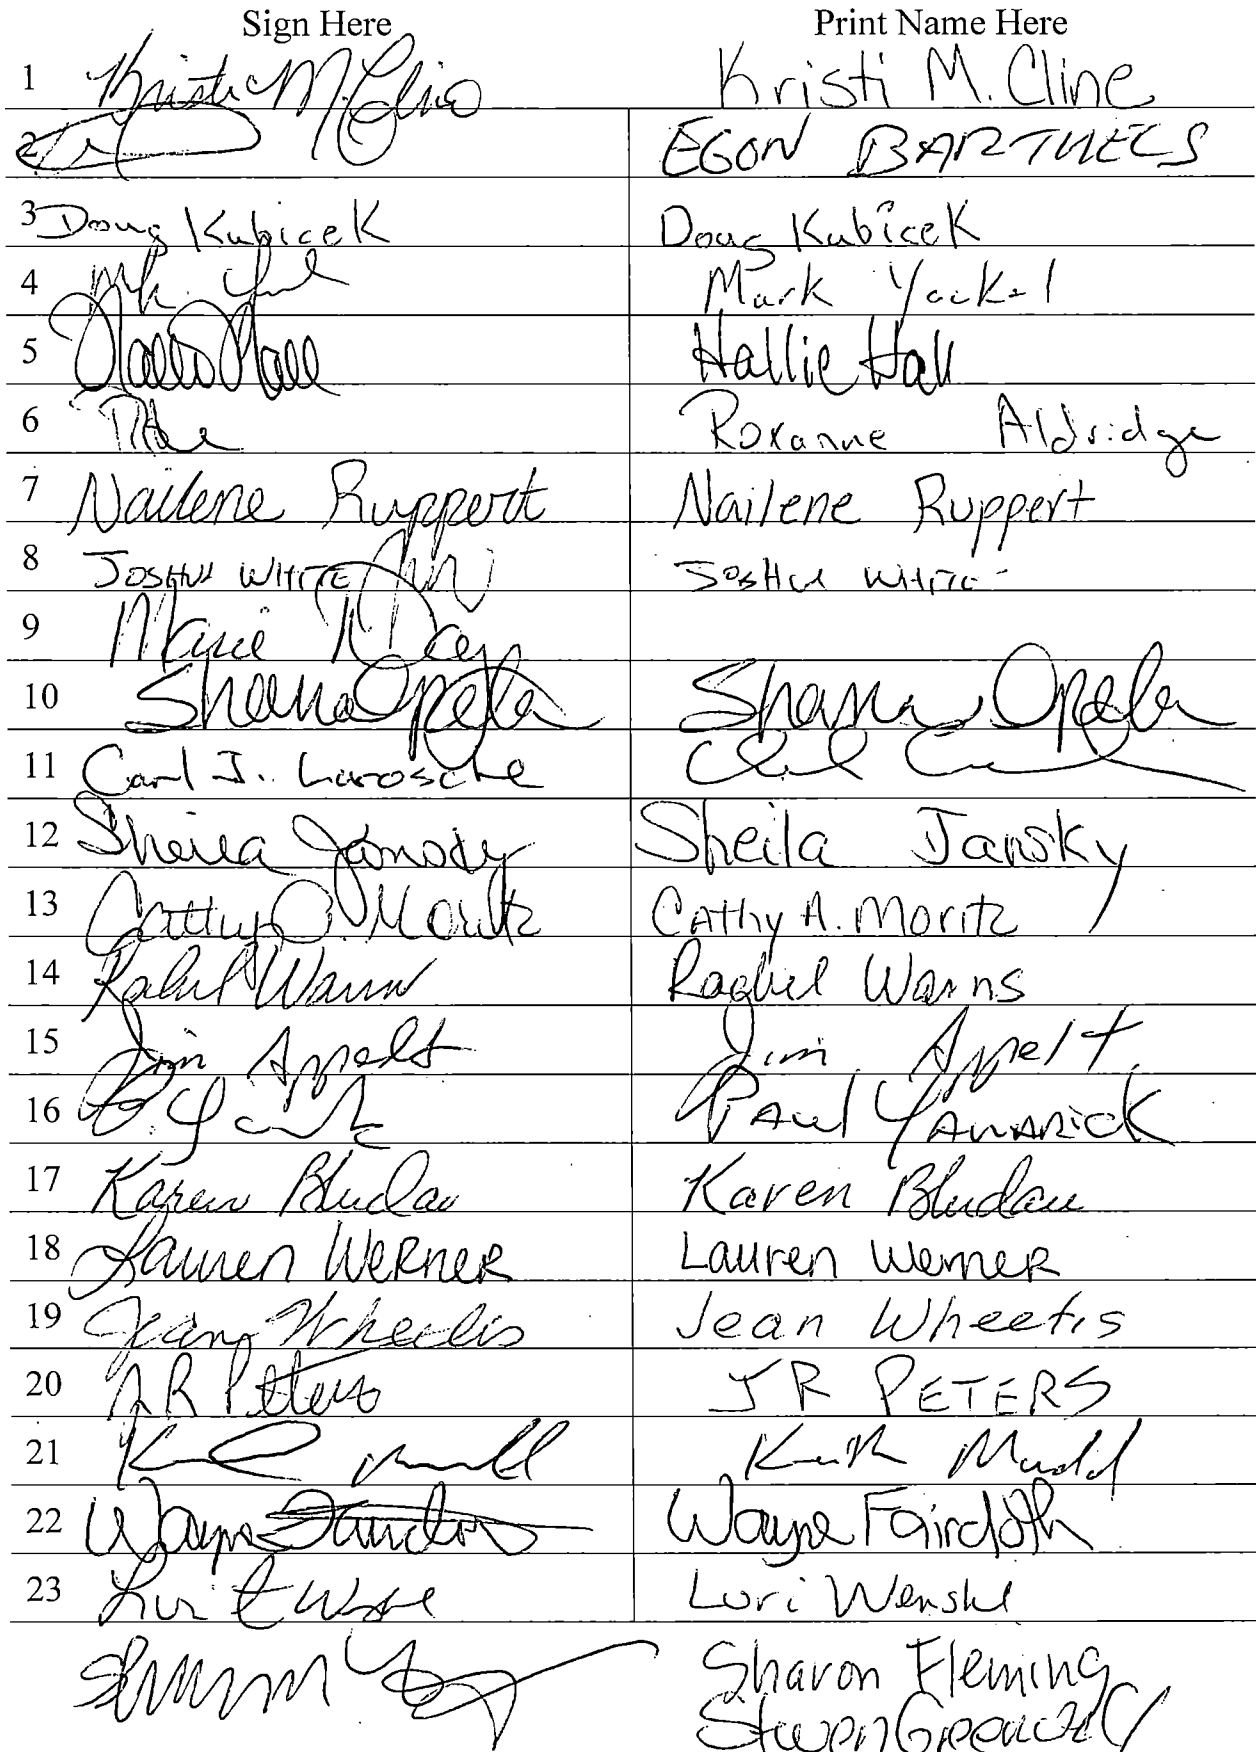 Sign Here Print Name Here
1 Kristi M. Cline Kristi M. Cline
2 EGON BARTHELS
3 Doug Kubicek Doug Kubicek
4 Mark Yackel
5 Hallie Hall Hallie Hall
6 Roxanne Aldridge
7 Nailene Ruppert Nailene Ruppert
8 JOSHUA WHITE JOSHUA WHITE
9 Marie Day
10 Shana Opela Shana Opela
11 Carl J. Larosche
12 Sheila Jansky Sheila Jansky
13 Cathy A. Moritz CAthy A. Moritz
14 Rachel Warns
15 Jim Appelt Jim Appelt
16 PAul YANARICK
17 Karen Bludau Karen Bludau
18 Lauren WERNER Lauren WernER
19 Jean Wheelis Jean Wheelis
20 JR Peters JR PETERS
21 Keith Mudd
22 Wayne Wayne Faircloth
23 Lori Wenske
Sharon Fleming